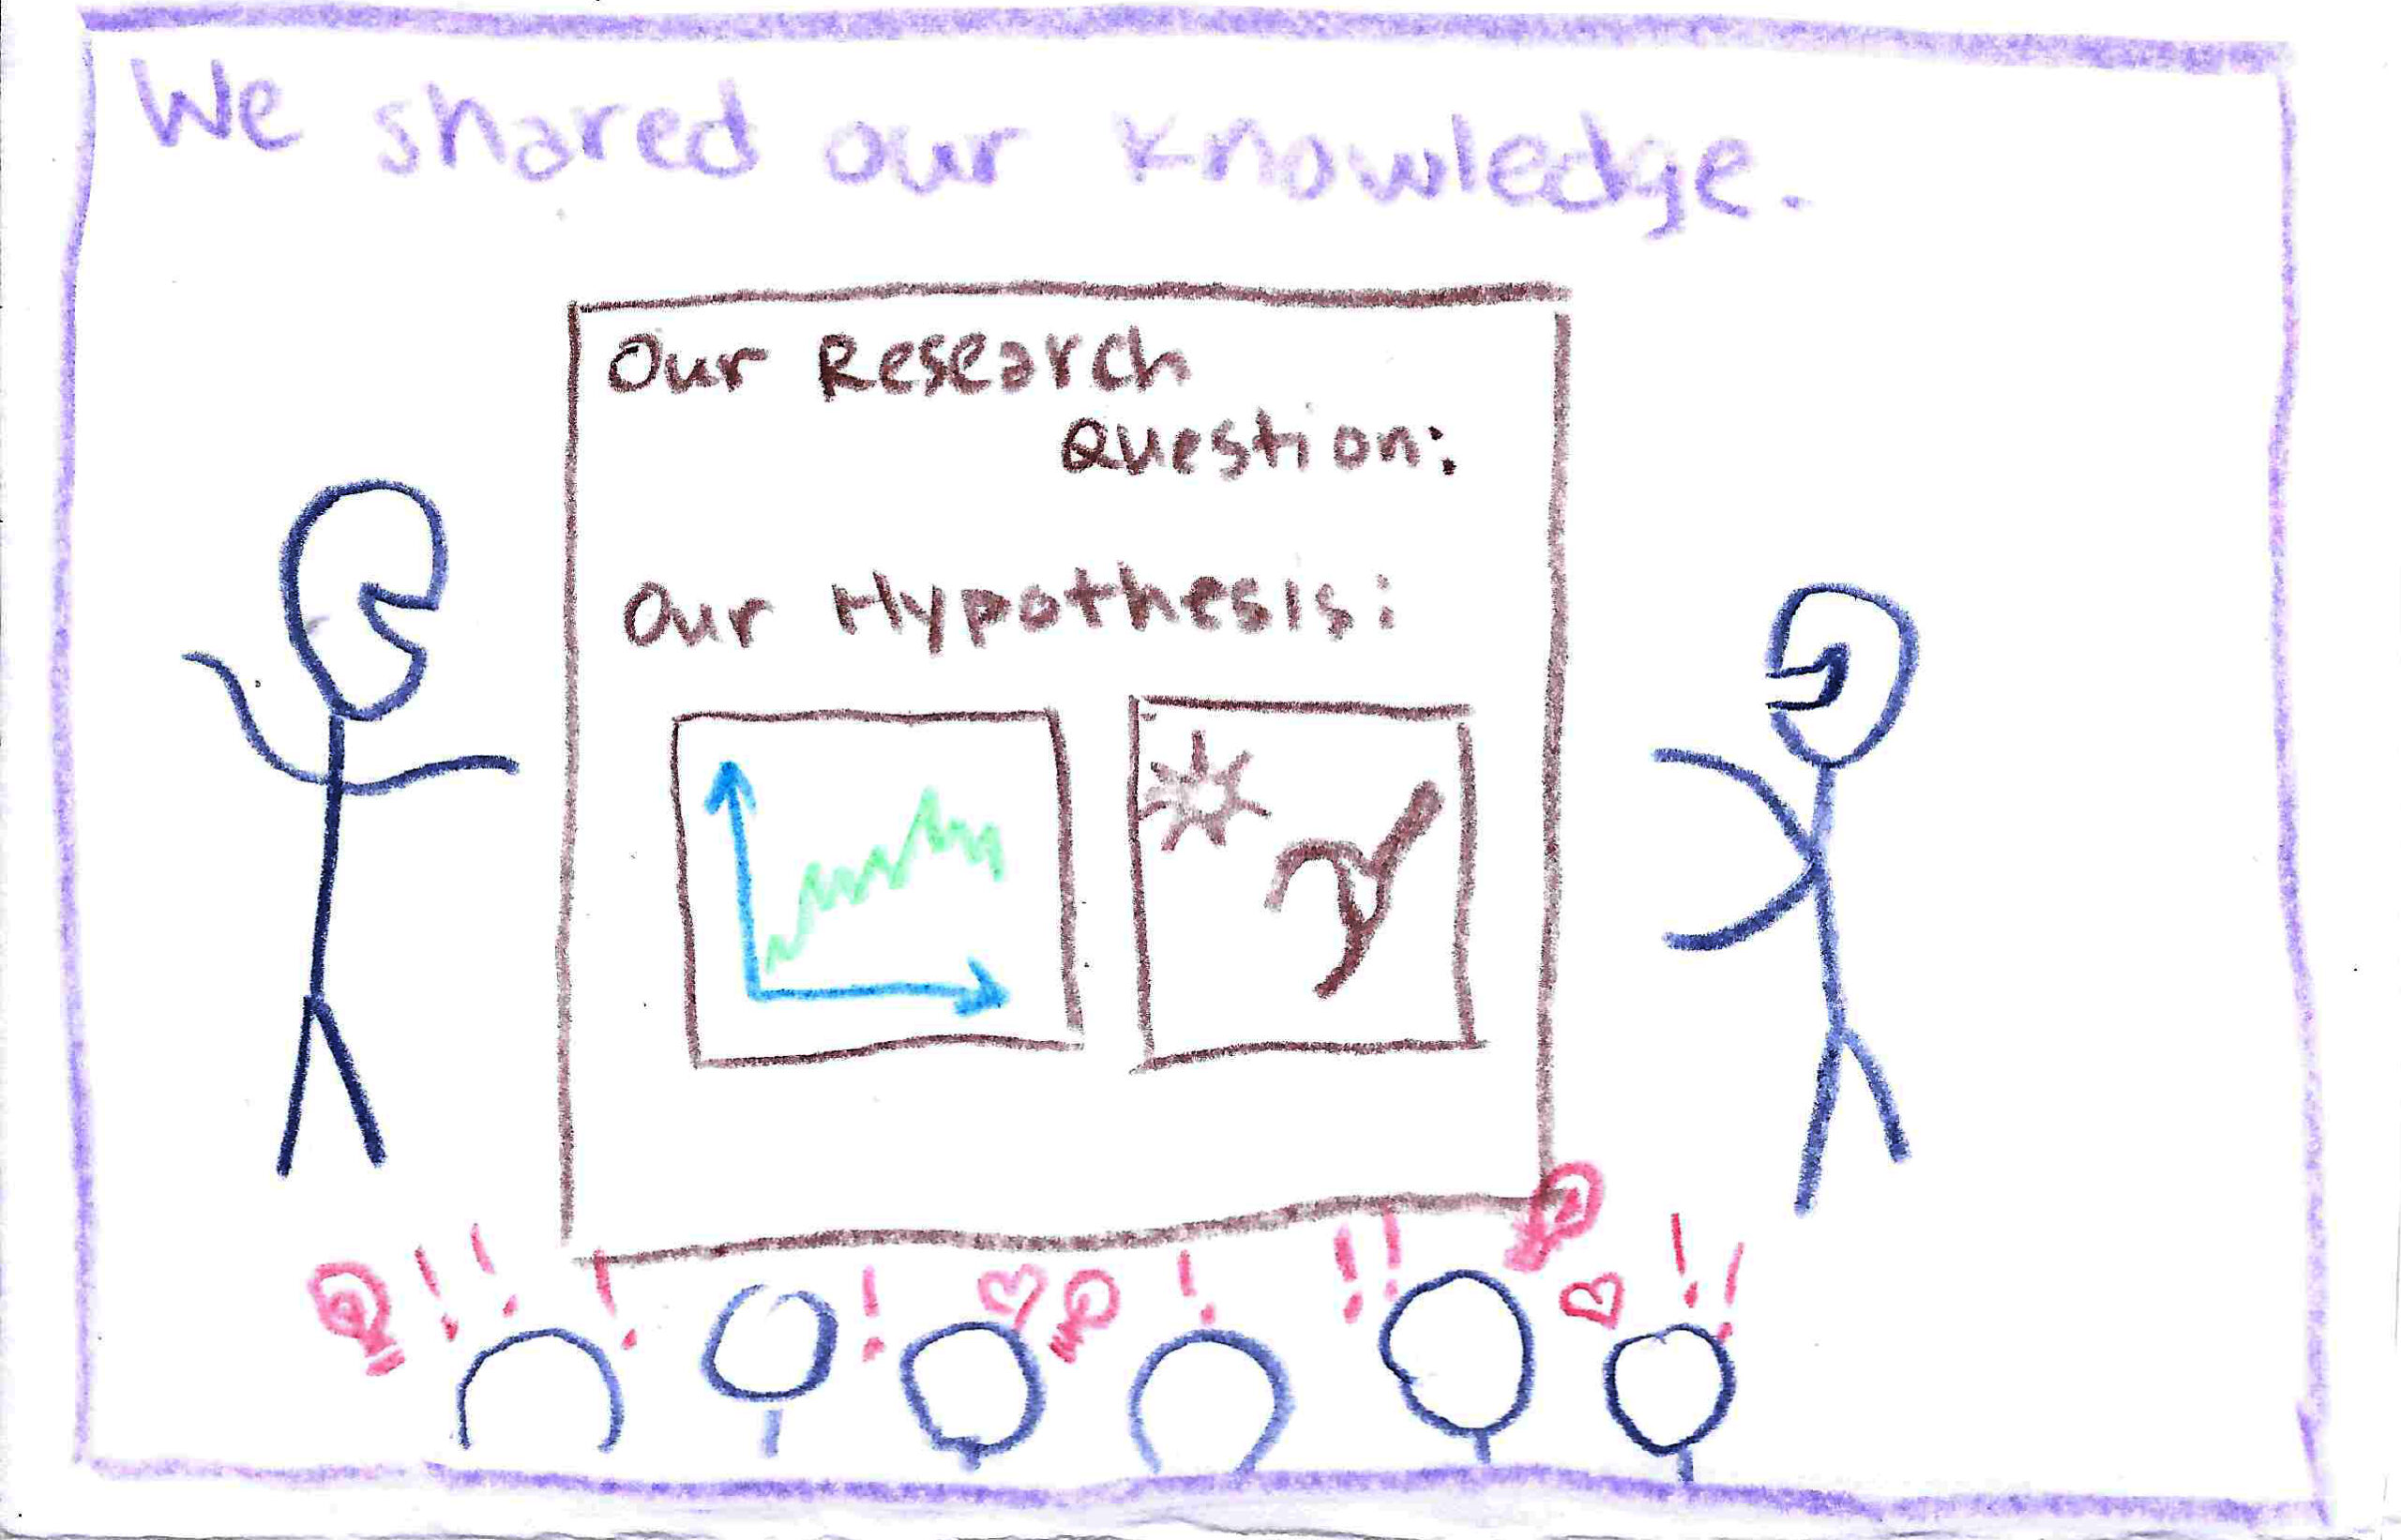 We shared our knowledge.
Our Research
Question:
Our Hypothesis: